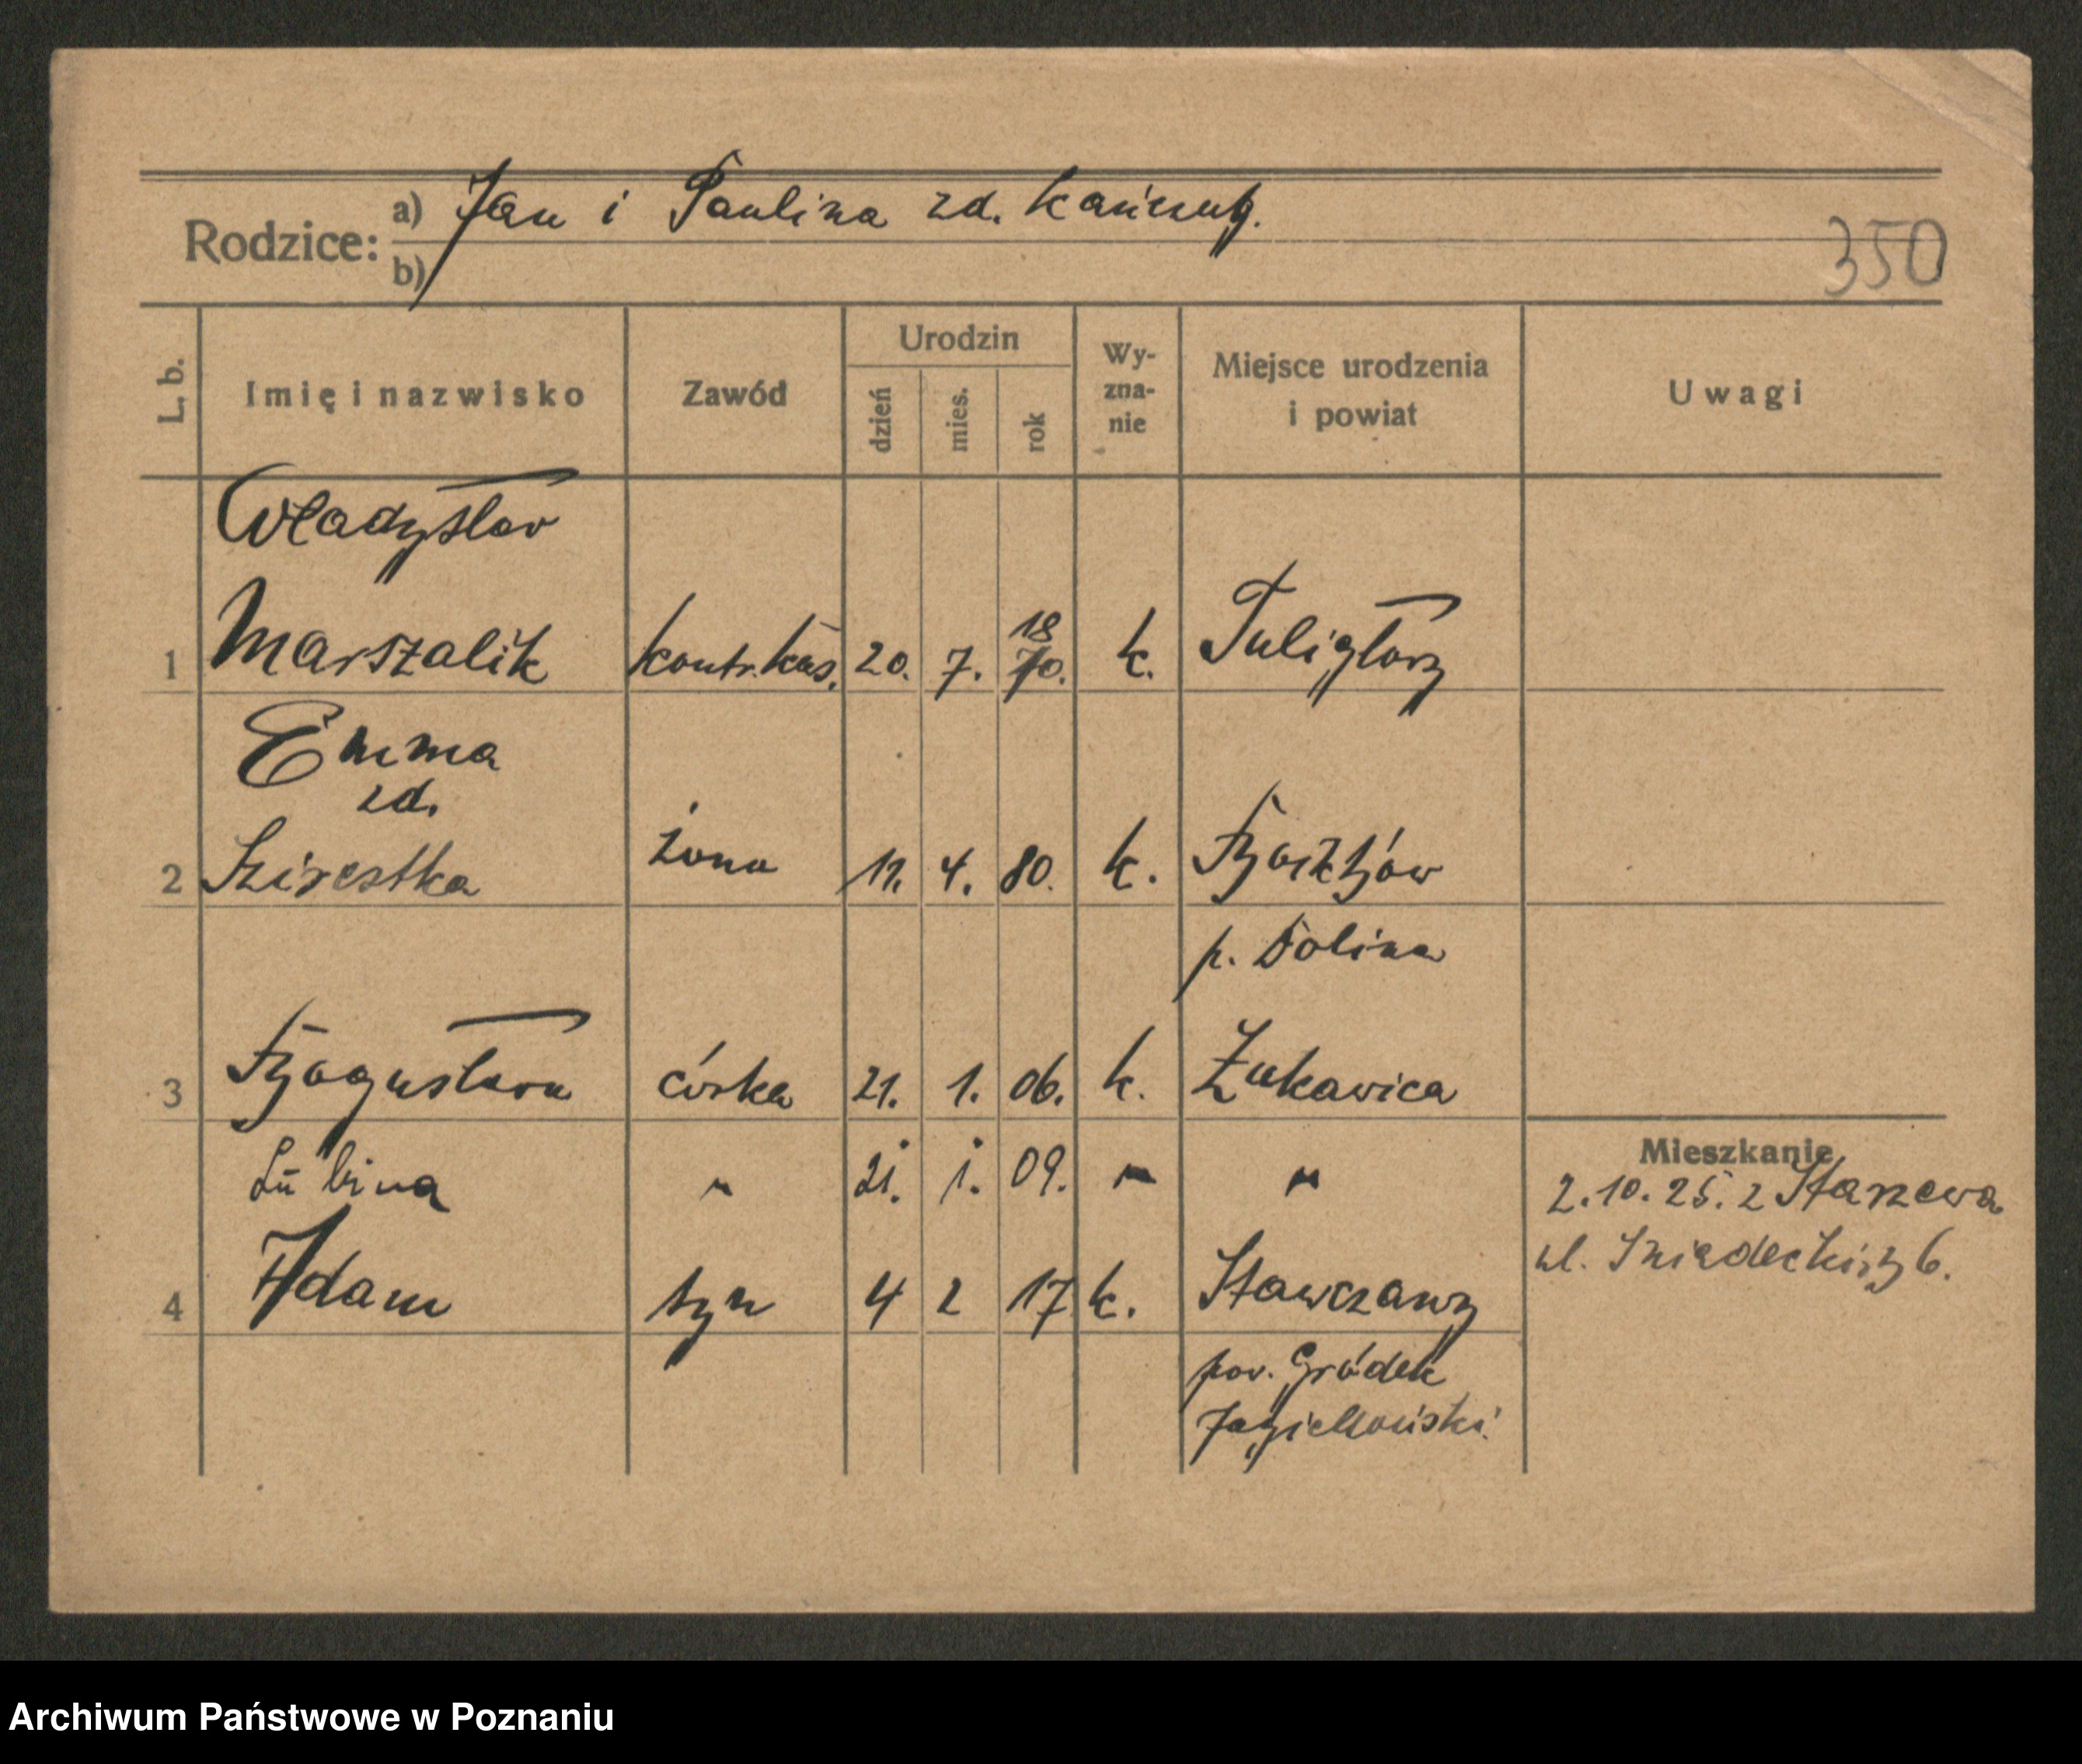 Rodzice: a) Jan i Paulina zd. Kańczug.
b)
350
L. b. Imię i nazwisko Zawód Urodzin dzień mies. rok Wy-zna-nie Miejsce urodzenia i powiat Uwagi
Władysław
18
1 Marszalik kontr. kas. 20. 7. 70. k. Tuligłowy
Emma
zd.
2 żona 11. 4. 80. k.
p. Dolina
3 Bogusława córka 21. 1. 06. k. Żukawica
Lubina " 21. 1. 09. " "
Mieszkanie
2.10.25. z
4 Adam syn 4 2 17 k. Stawczany
ul. Śniadeckich 6.
pow. Gródek
Jagielloński.
Archiwum Państwowe w Poznaniu